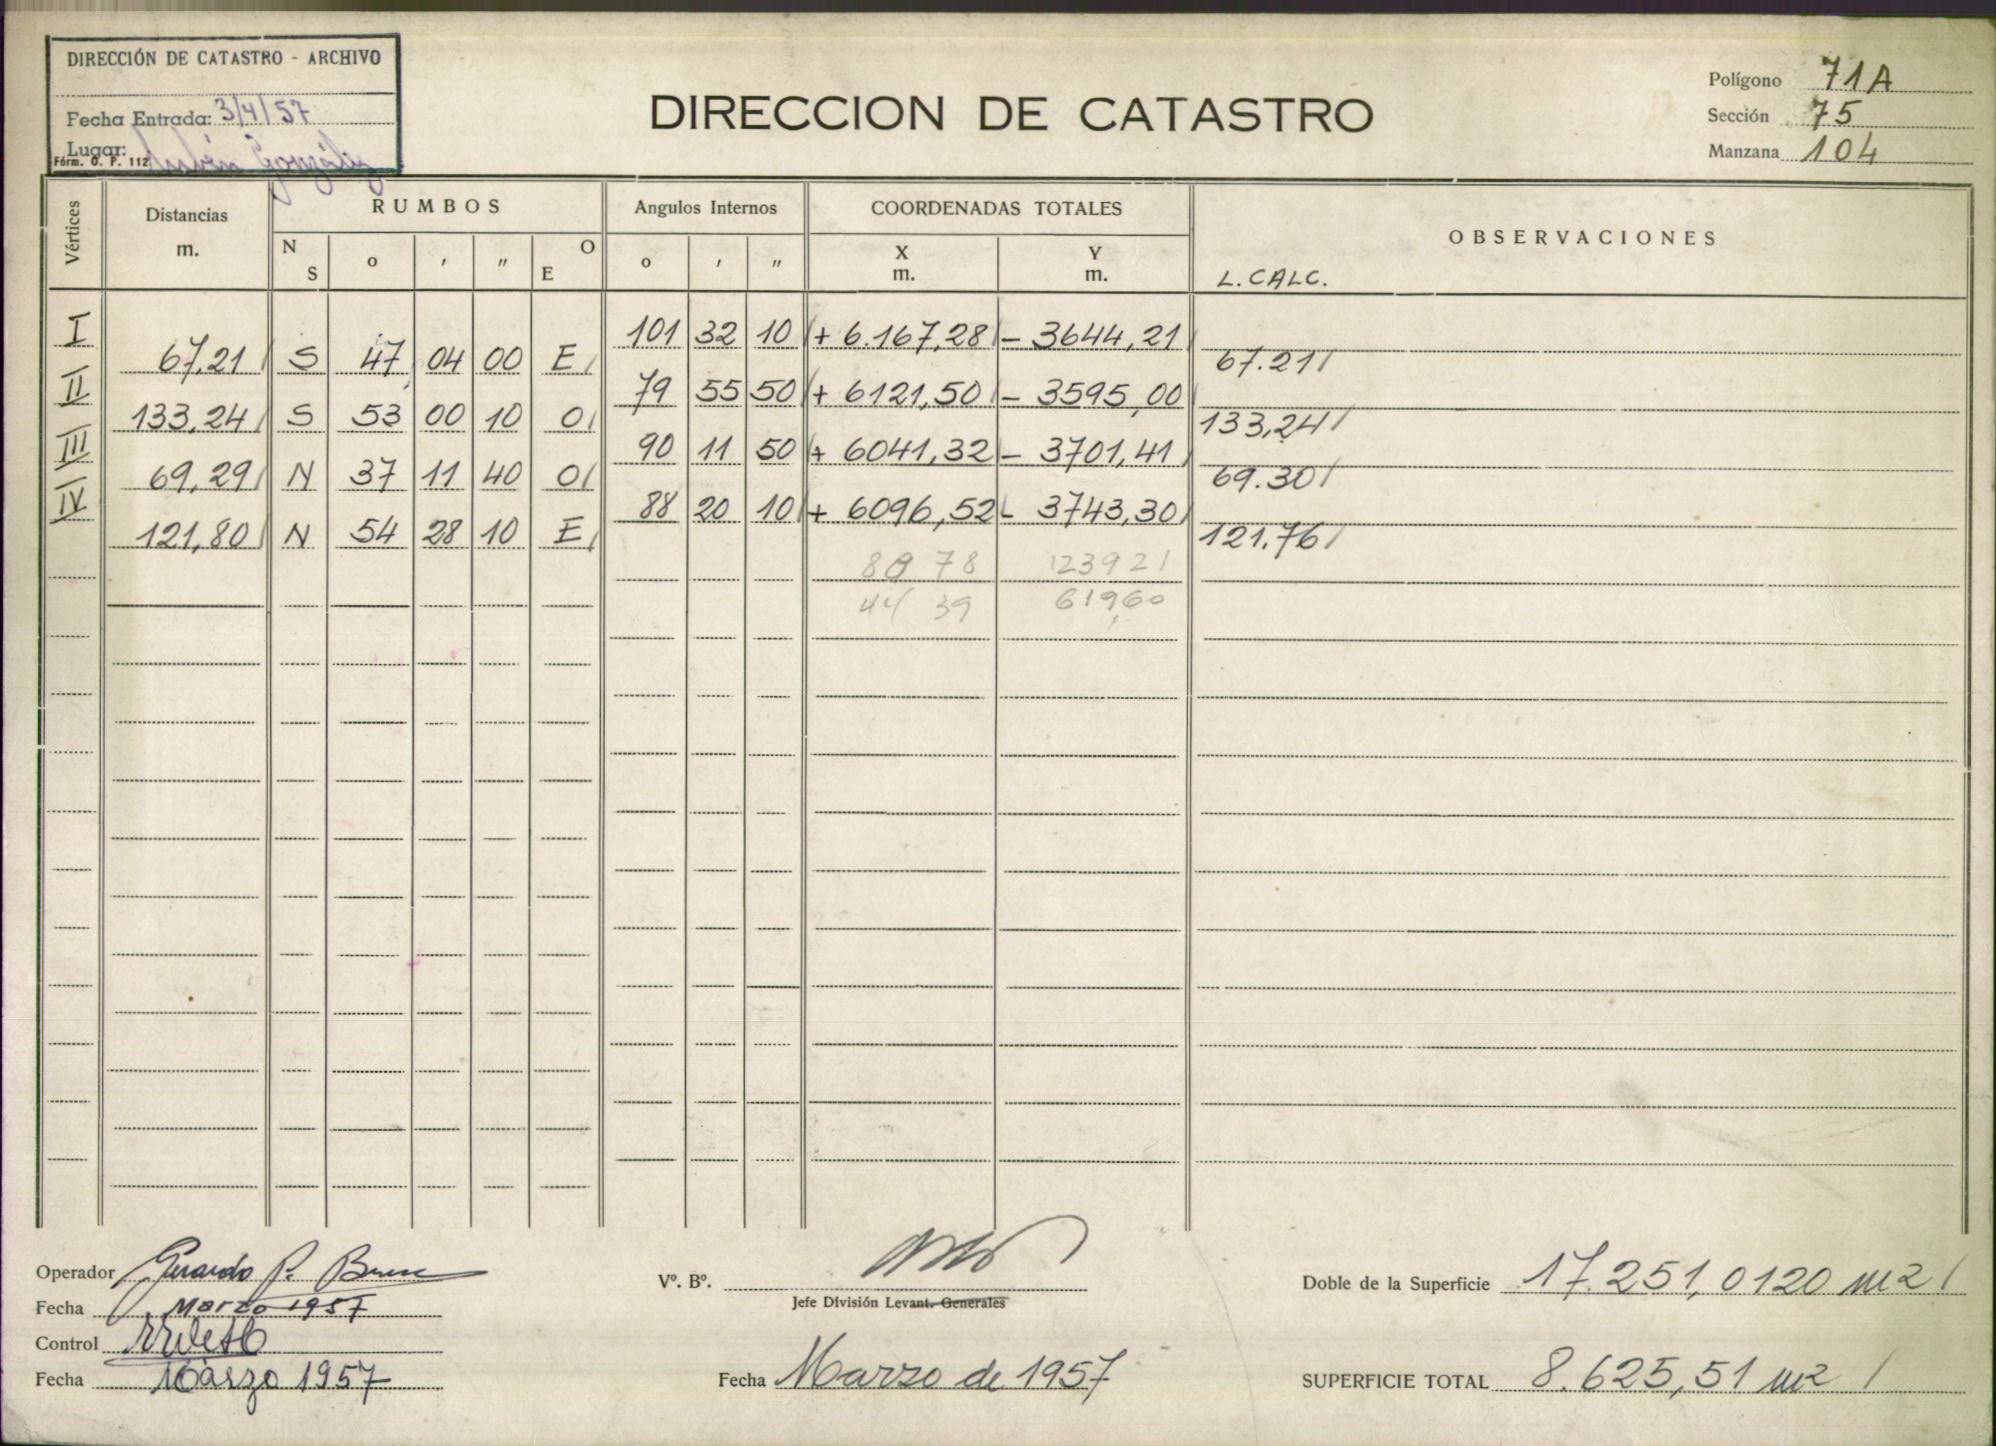 DIRECCIÓN DE CATASTRO - ARCHIVO
Fecha Entrada: 3/4/57
Lugar:
Fórm. O. P. 112
Rubén González
DIRECCION DE CATASTRO
Polígono 71A
Sección 75
Manzana 104
Vértices Distancias m. RUMBOS Angulos Internos COORDENADAS TOTALES OBSERVACIONES
N S o ' " O E o ' " X m. Y m. L. CALC.
I 101 32 10 + 6.167,28 - 3644,21
67,21 S 47 04 00 E 67.21
II 79 55 50 + 6121,50 - 3595,00
133,24 S 53 00 10 O 133,24
III 90 11 50 + 6041,32 - 3701,41
69,29 N 37 11 40 O 69.30
IV 88 20 10 + 6096,52 - 3743,30
121,80 N 54 28 10 E 121.76
78 123921
44 39 61960
Operador Gerardo P.
Fecha Marzo 1957
Control
Fecha Marzo 1957
Vº. Bº.
Jefe División Levant. Generales
Fecha Marzo de 1957
Doble de la Superficie 17.251,0120 m2
SUPERFICIE TOTAL 8.625,51 m2